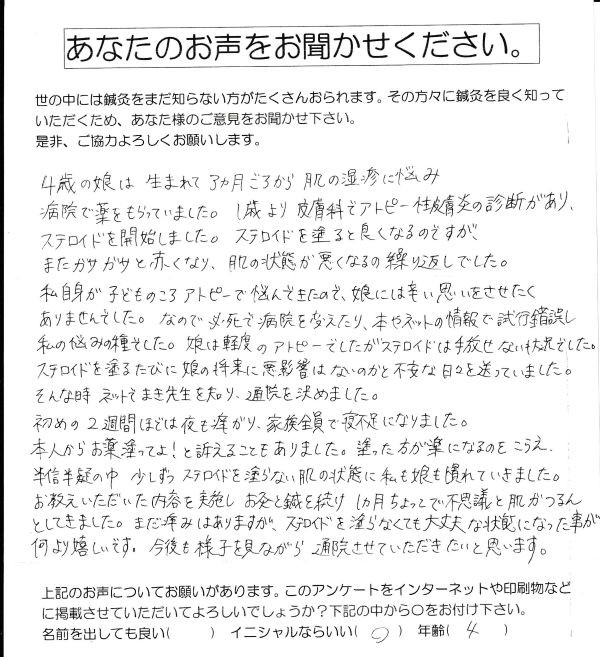 あなたのお声をお聞かせください。
世の中には鍼灸をまだ知らない方がたくさんおられます。その方々に鍼灸を良く知って
いただくため、あなた様のご意見をお聞かせ下さい。
是非、ご協力よろしくお願いします。
4歳の娘は 生まれて 3ヵ月ごろから 肌の湿疹に悩み
病院で薬をもらっていました。 1歳より 皮膚科でアトピー性皮膚炎の診断があり、
ステロイドを開始しました。 ステロイドを塗ると良くなるのですが、
またガサガサと赤くなり、肌の状態が悪くなるの繰り返しでした。
私自身が子どものころ アトピーで悩んできたので、娘には辛い思いをさせたく
ありませんでした。 なので 必死で病院を変えたり、本やネットの情報で試行錯誤し
私の悩みの種でした。 娘は軽度のアトピーでしたがステロイドは手放せない状況でした。
ステロイドを塗るたびに 娘の将来に悪影響はないのかと不安な日々を送っていました。
そんな時 ネットでまき先生を知り、通院を決めました。
初めの 2週間ほどは夜も痒がり、家族全員で寝不足になりました。
本人からお薬塗ってよ!と訴えることもありました。塗った方が楽になるのをこらえ、
半信半疑の中 少しずつ ステロイドを塗らない肌の状態に私も娘も慣れていきました。
お教えいただいた内容を実施し お灸と鍼を続け 1ヵ月ちょっとで不思議と肌がつるん
としてきました。まだ痒みはありますが、ステロイドを塗らなくても大丈夫な状態になった事が
何より嬉しいです。今後も様子を見ながら 通院させていただきたいと思います。
上記のお声についてお願いがあります。このアンケートをインターネットや印刷物など
に掲載させていただいてよろしいでしょうか?下記の中から○をお付け下さい。
名前を出しても良い( ) イニシャルならいい( ○ ) 年齢( 4 )